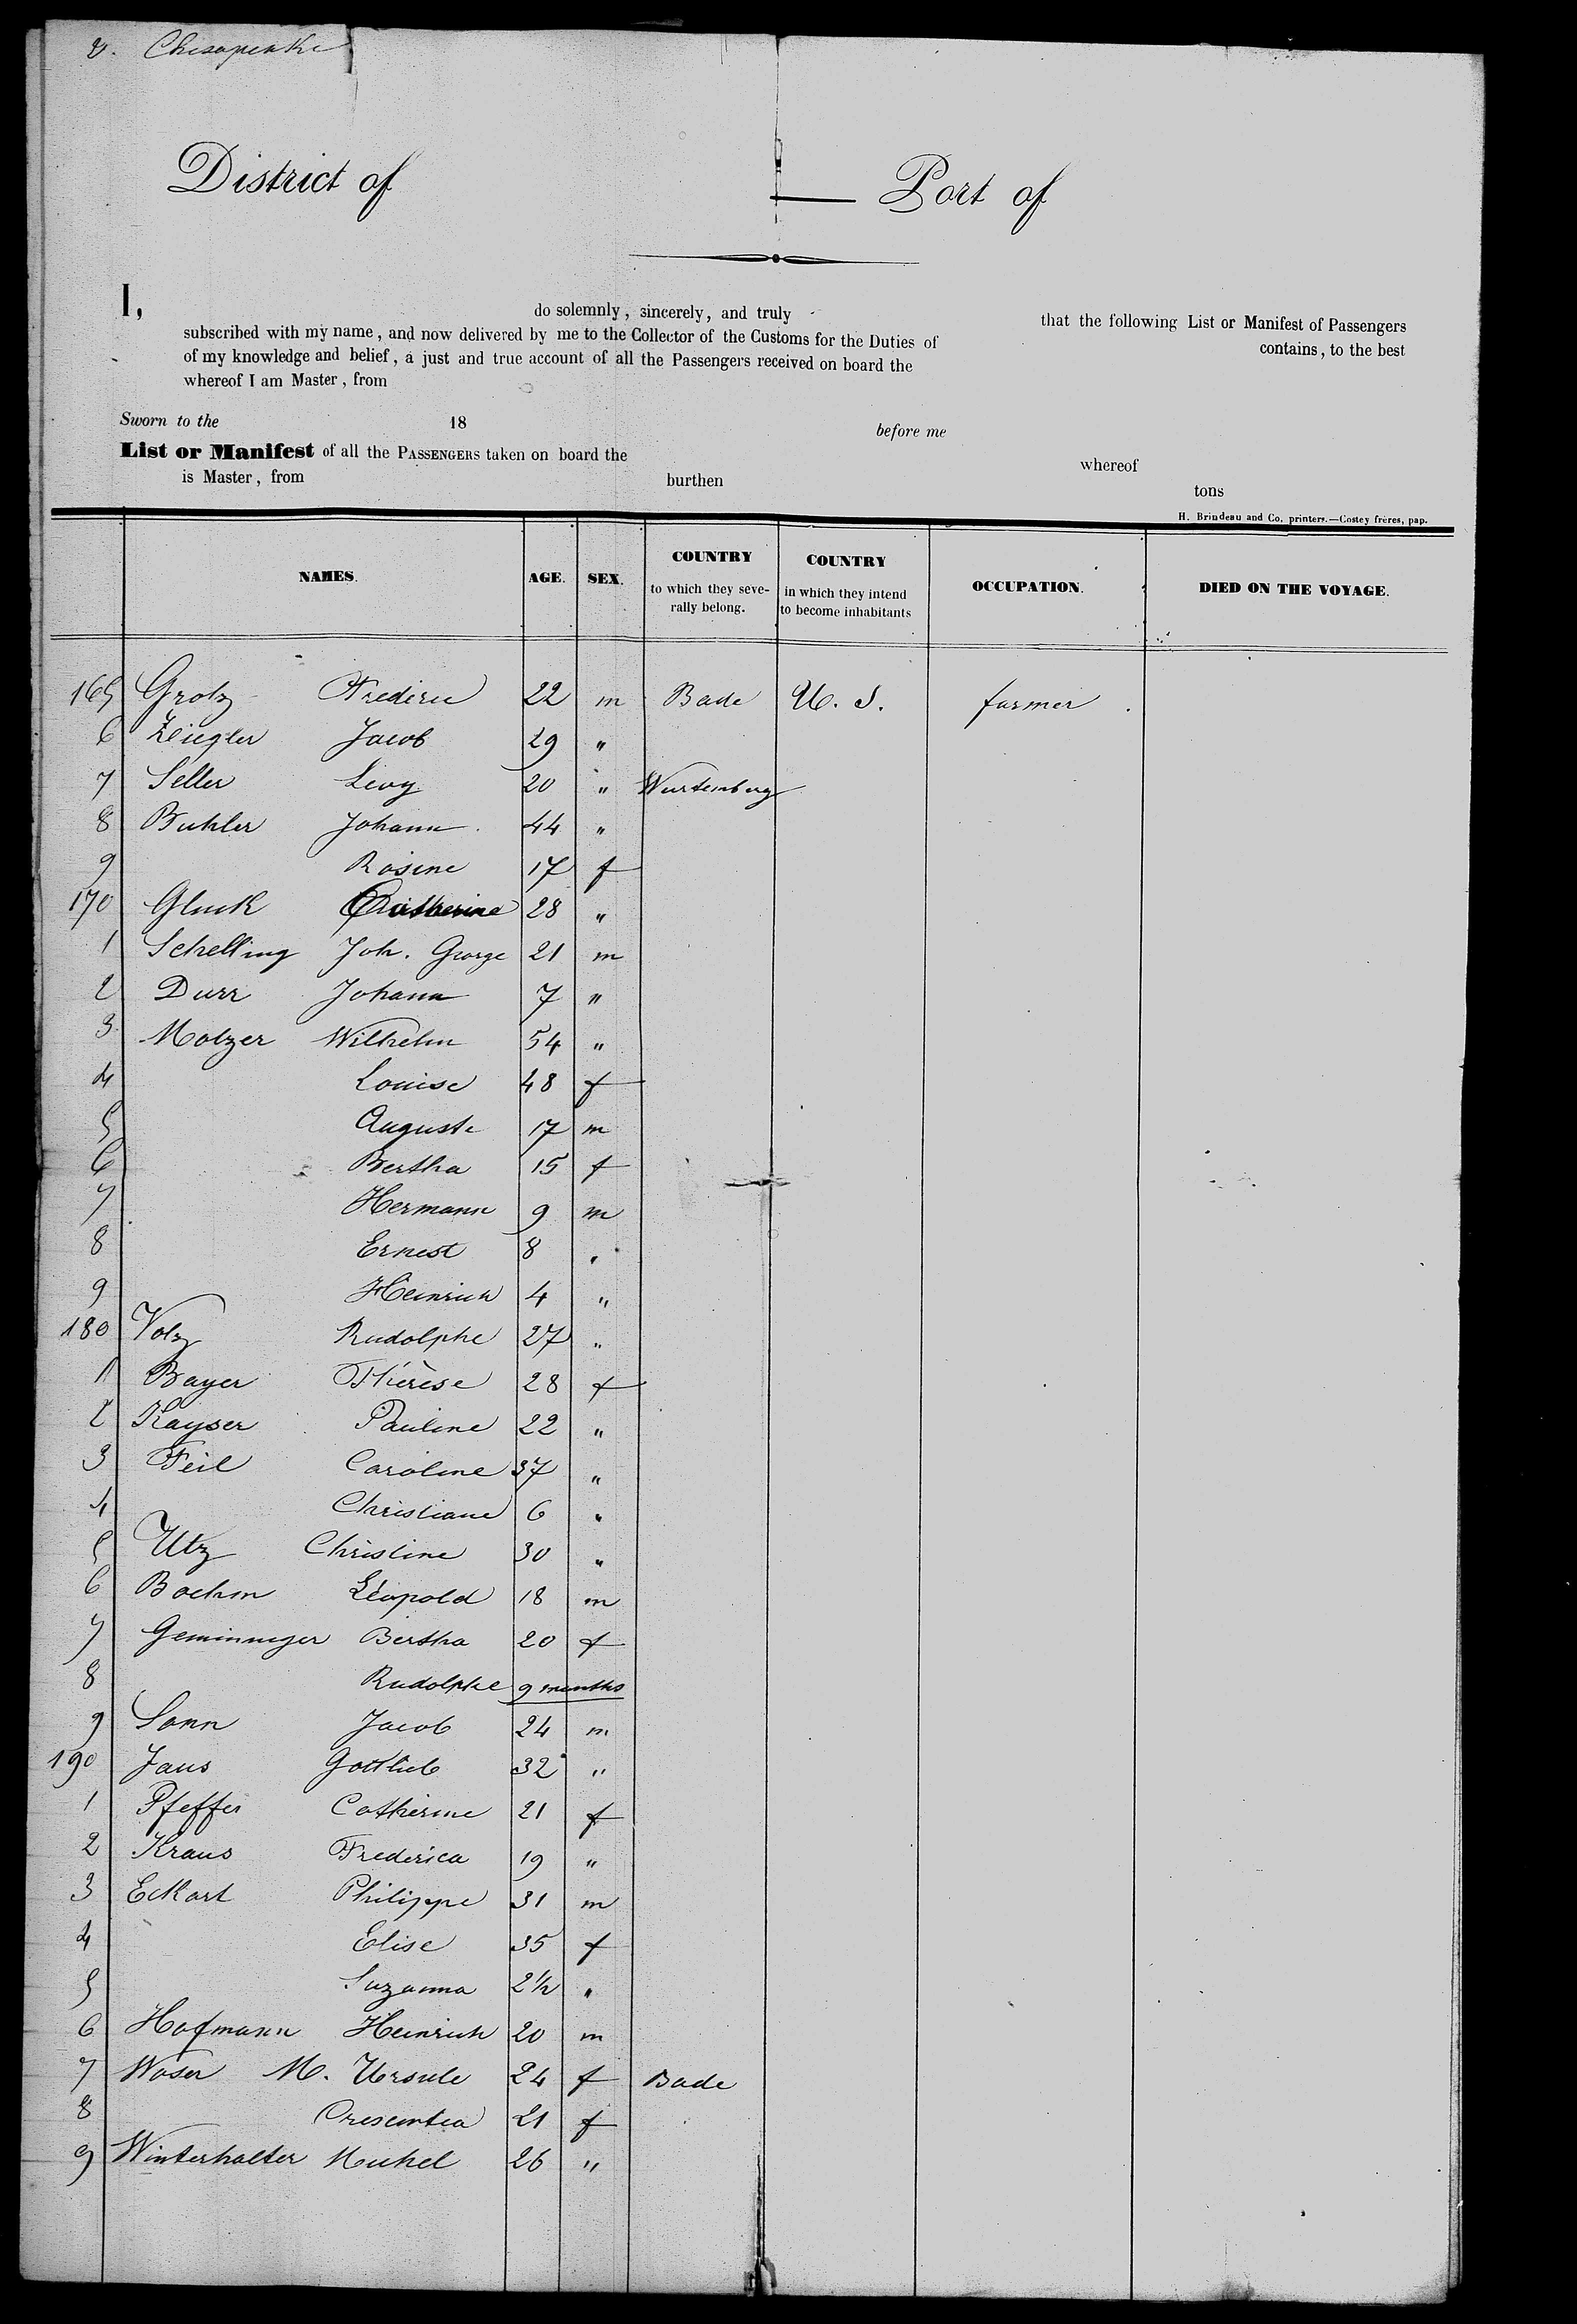 v. Chesapeake
District of — Port of
I, do solemnly, sincerely, and truly that the following List or Manifest of Passengers
subscribed with my name, and now delivered by me to the Collector of the Customs for the Duties of contains, to the best
of my knowledge and belief, a just and true account of all the Passengers received on board the
whereof I am Master, from
Sworn to the 18 before me
List or Manifest of all the PASSENGERS taken on board the whereof
is Master, from burthen tons
H. Brindeau and Co. printers.—Costey frères, pap.
NAMES. AGE. SEX. COUNTRY to which they seve- rally belong. COUNTRY in which they intend to become inhabitants OCCUPATION. DIED ON THE VOYAGE.
165 Grolz Frederic 22 m Bade U. S. farmer
6 Zeiegler Jacob 29 "
7 Seller Levy 20 " Wurtemberg
8 Buhler Johann 44 "
9 Rosine 17 f
170 Gluck Catherine 28 "
1 Schelling Joh. George 21 m
2 Durr Johann 7 "
3 Molzer Wilhelm 54 "
4 Louise 48 f
5 Auguste 17 m
6 Bertha 15 f
7 Hermann 9 m
8 Ernest 8 "
9 Heinrich 4 "
180 Volz Rudolphe 27 "
1 Bayer Thérèse 28 f
2 Kayser Pauline 22 "
3 Feil Caroline 37 "
4 Christiane 6 "
5 Utz Christine 30 "
6 Boehm Léopold 18 m
7 Geminneger Bertha 20 f
8 Rudolphe 9 months
9 Sonn Jacob 24 m
190 Jaus Gottlieb 32 "
1 Pfeffer Catherine 21 f
2 Kraus Frederica 19 "
3 Eckart Philippe 31 m
4 Elise 35 f
5 Suzanna 2½ "
6 Hofmann Heinrich 20 m
7 Waser M. Ursule 24 f Bade
8 Crescentia 21 f
9 Winterhalter Michel 26 "